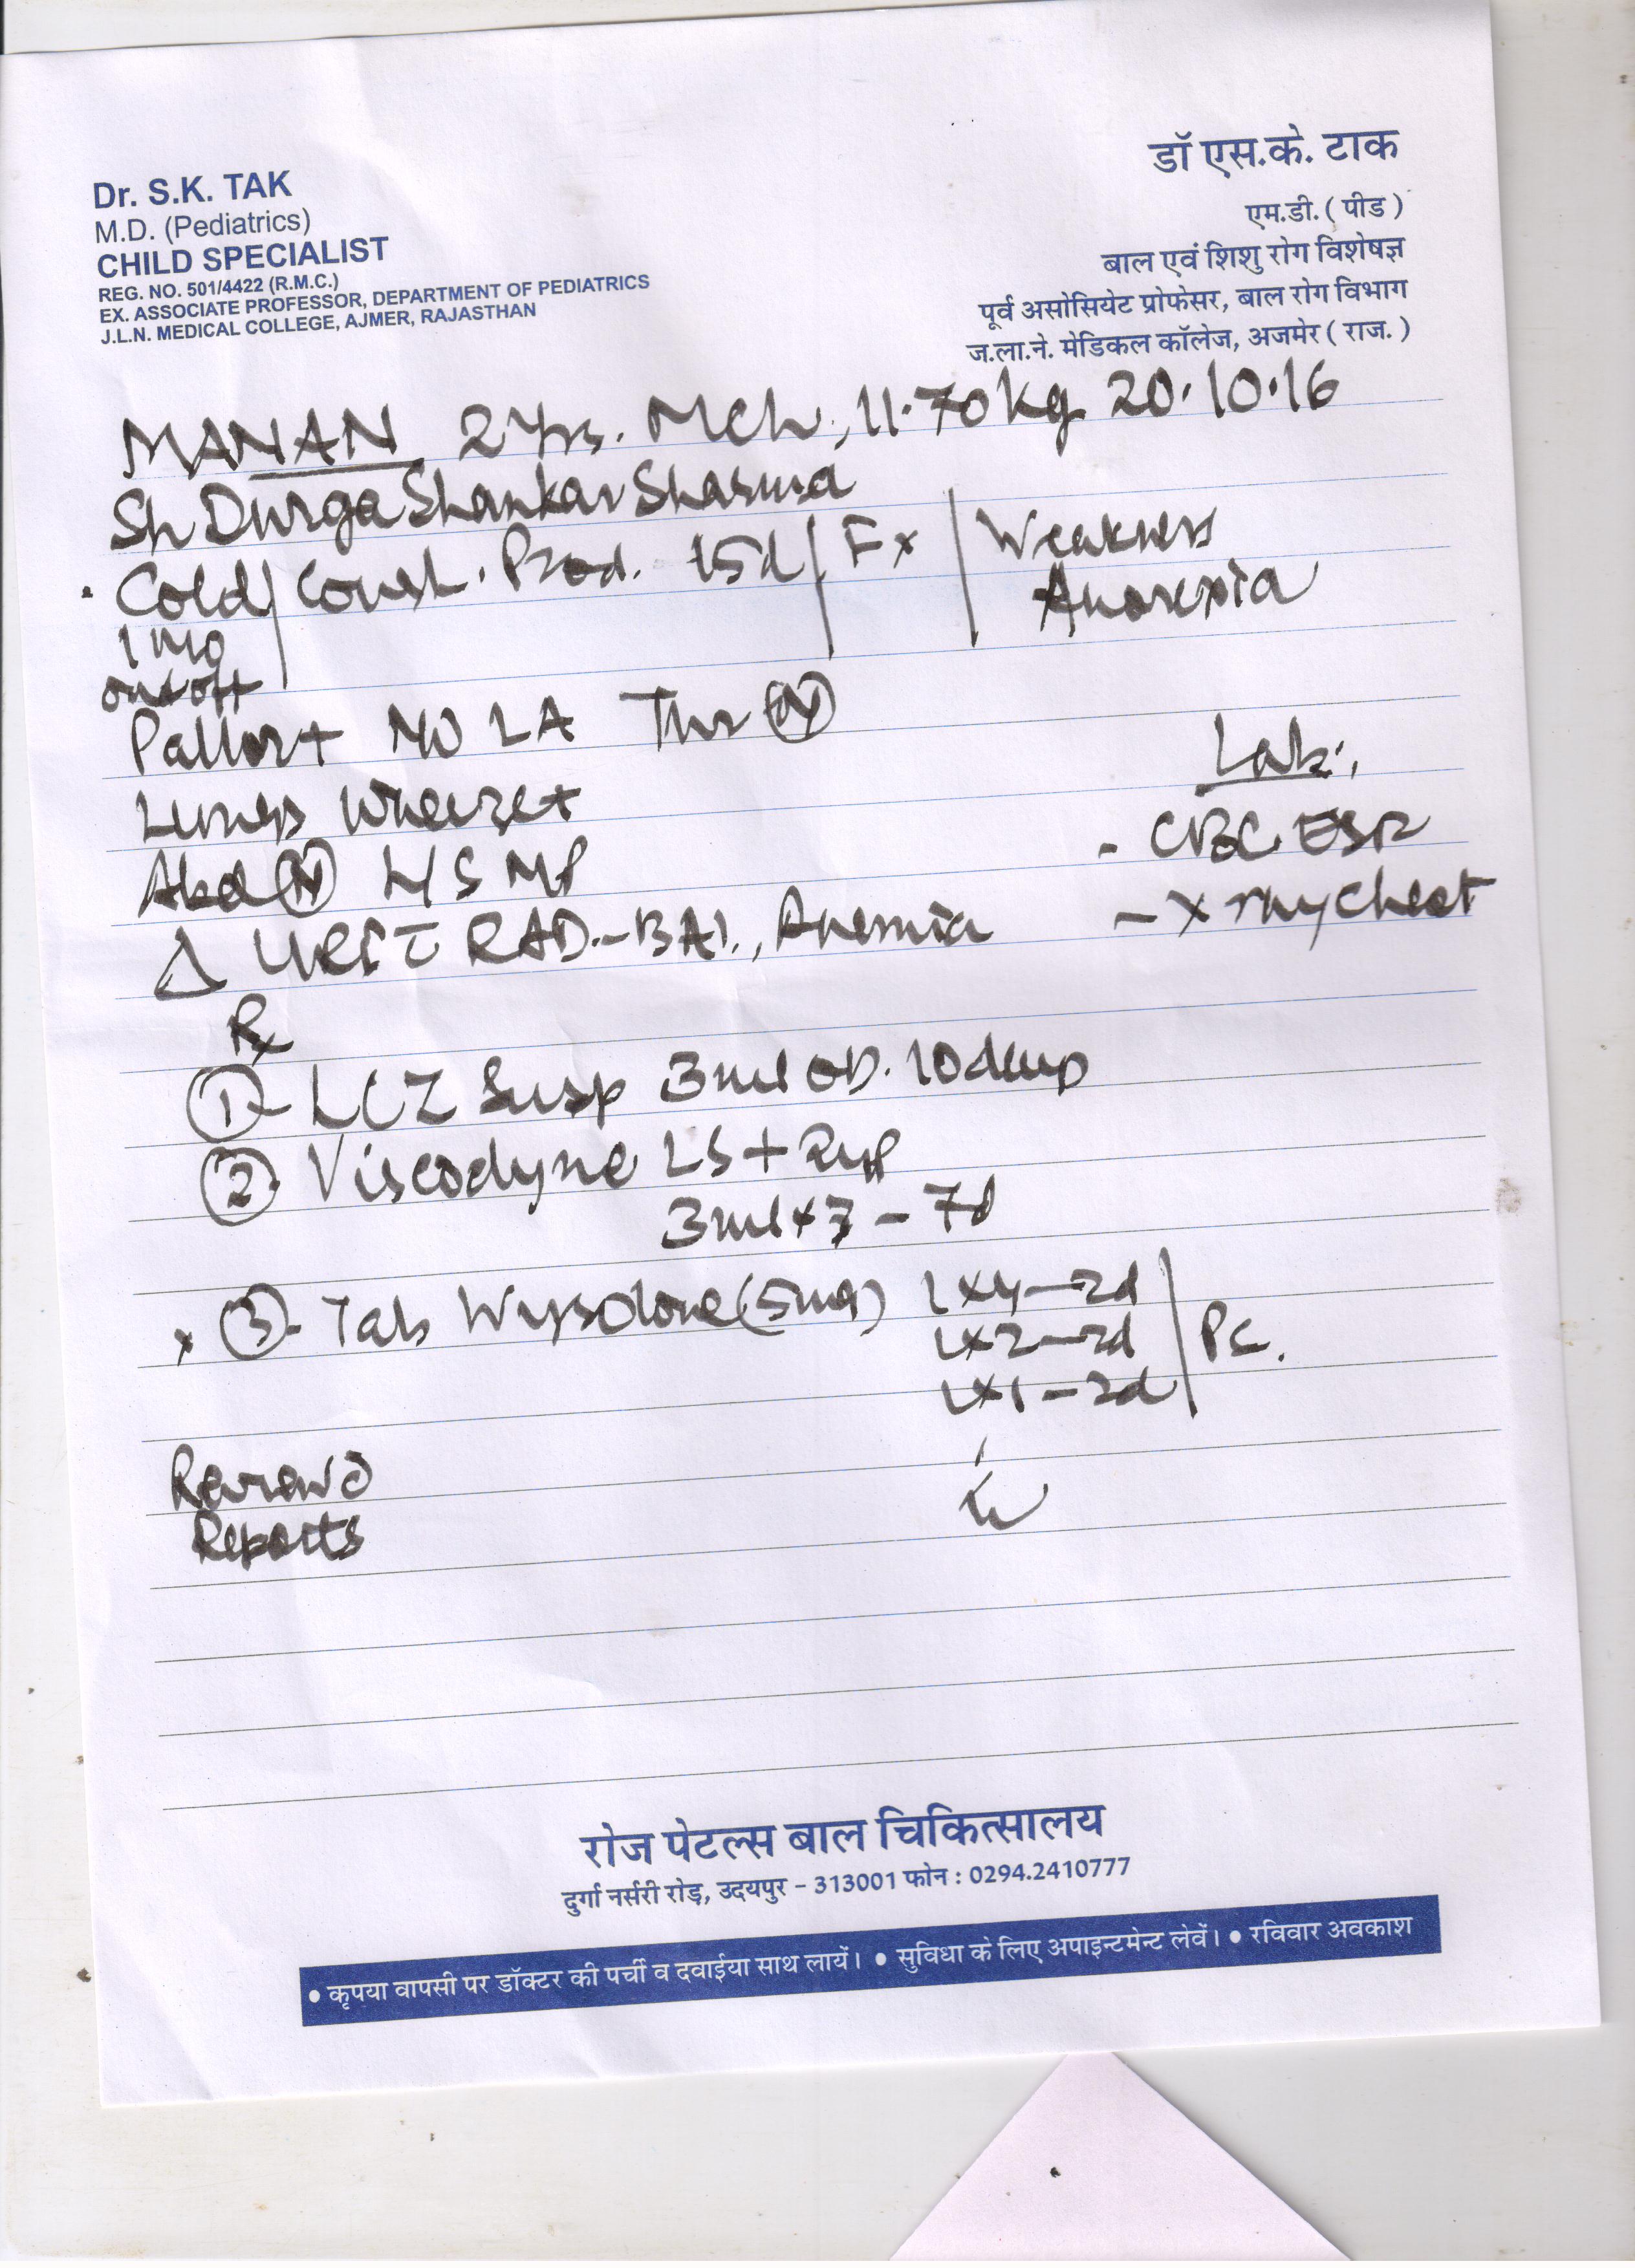 Dr. S.K. TAK
M.D. (Pediatrics)
CHILD SPECIALIST
REG. NO. 501/4422 (R.M.C.)
EX. ASSOCIATE PROFESSOR, DEPARTMENT OF PEDIATRICS
J.L.N. MEDICAL COLLEGE, AJMER, RAJASTHAN
डॉ एस.के. टाक
एम.डी. ( पीड )
बाल एवं शिशु रोग विशेषज्ञ
पूर्व असोसियेट प्रोफेसर, बाल रोग विभाग
ज.ला.ने. मेडिकल कॉलेज, अजमेर ( राज. )
MANAN 2 Yrs. MCh, 11.70 kg 20.10.16
Sh Durga Shankar Sharma
Cold / Cough. Prod. 15d / Fx / Weakness
Anorexia
1 mo
on & off
Pallor+ NO LA Thr (N)
Lungs Wheeze+
Abd (N) L/S NP
Δ URI c̄ RAD-BA1., Anemia
Lab:
- CBC ESR
- X ray Chest
Rx
① - LCZ Susp 3ml OD. 10days
② Viscodyne LS +
3ml x 3 - 7d
x ③ - Tab Wysolone (5mg) 1x4-2d
1x2-2d
1x1-2d
PC.
Review c̄
Reports
रोज पेटल्स बाल चिकित्सालय
दुर्गा नर्सरी रोड़, उदयपुर - 313001 फोन : 0294.2410777
• कृपया वापसी पर डॉक्टर की पर्ची व दवाईया साथ लायें। • सुविधा के लिए अपाइन्टमेन्ट लेवें। • रविवार अवकाश